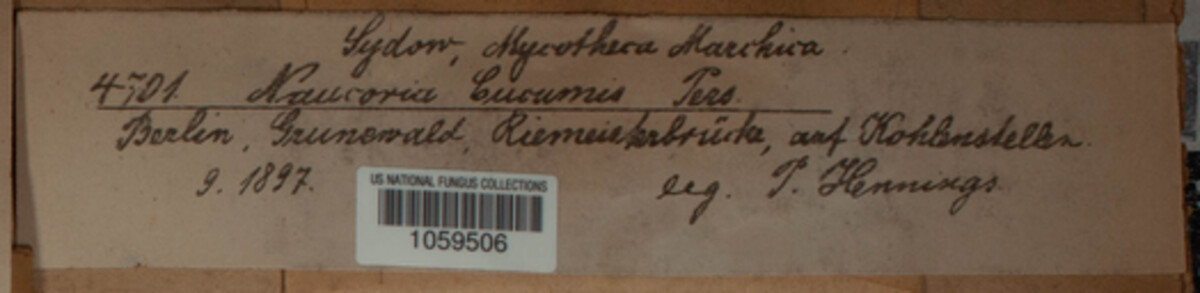 Sydow, Mycotheca Marchica.
4701. Naucoria Cucumis Pers.
Berlin, Grunewald, Riemeisterbrücke, auf Kohlenstellen.
9. 1897. leg. P. Hennings.
US NATIONAL FUNGUS COLLECTIONS
1059506